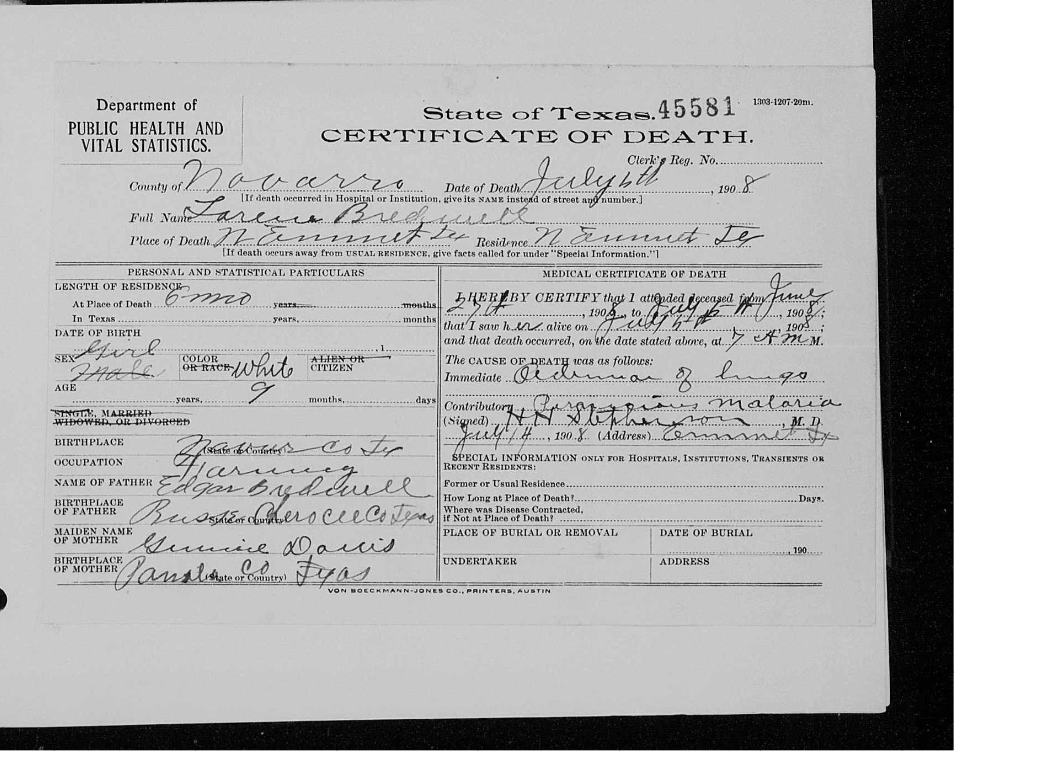 Department of
PUBLIC HEALTH AND
VITAL STATISTICS.
State of Texas. 45581 1303-1207-20m.
CERTIFICATE OF DEATH.
Clerk's Reg. No.
County of Navarro Date of Death July 6th, 1908
[If death occurred in Hospital or Institution, give its NAME instead of street and number.]
Full Name Bredwell
Place of Death N Emmet Tx Residence N Emmet Tx
[If death occurs away from USUAL RESIDENCE, give facts called for under "Special Information."]
PERSONAL AND STATISTICAL PARTICULARS
LENGTH OF RESIDENCE
At Place of Death 6 mo years, months
In Texas years, months
DATE OF BIRTH
Girl 1
SEX Male COLOR OR RACE White ALIEN OR CITIZEN
AGE
years, 9 months, days
SINGLE, MARRIED
WIDOWED, OR DIVORCED
BIRTHPLACE Co Tx
(State or Country)
OCCUPATION
NAME OF FATHER Edgar Bredwell
BIRTHPLACE
OF FATHER Co Texas
(State or Country)
MAIDEN NAME
OF MOTHER Davis
BIRTHPLACE
OF MOTHER Panola Co Texas
(State or Country)
MEDICAL CERTIFICATE OF DEATH
I HEREBY CERTIFY that I attended deceased from June
27th, 1908, to July 5th, 1908;
that I saw her alive on July 5th 1908;
and that death occurred, on the date stated above, at 7 A M M.
The CAUSE OF DEATH was as follows:
Immediate of lungs
Contributory Malaria
(Signed) H H Stephenson, M. D.
July 14, 1908 (Address) Emmet Tx
SPECIAL INFORMATION ONLY FOR HOSPITALS, INSTITUTIONS, TRANSIENTS OR
RECENT RESIDENTS:
Former or Usual Residence
How Long at Place of Death? Days.
Where was Disease Contracted,
if Not at Place of Death?
PLACE OF BURIAL OR REMOVAL DATE OF BURIAL
, 190
UNDERTAKER ADDRESS
VON BOECKMANN-JONES CO., PRINTERS, AUSTIN